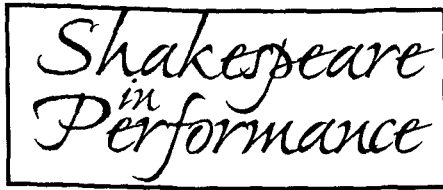 Shakespeare
in
Performance